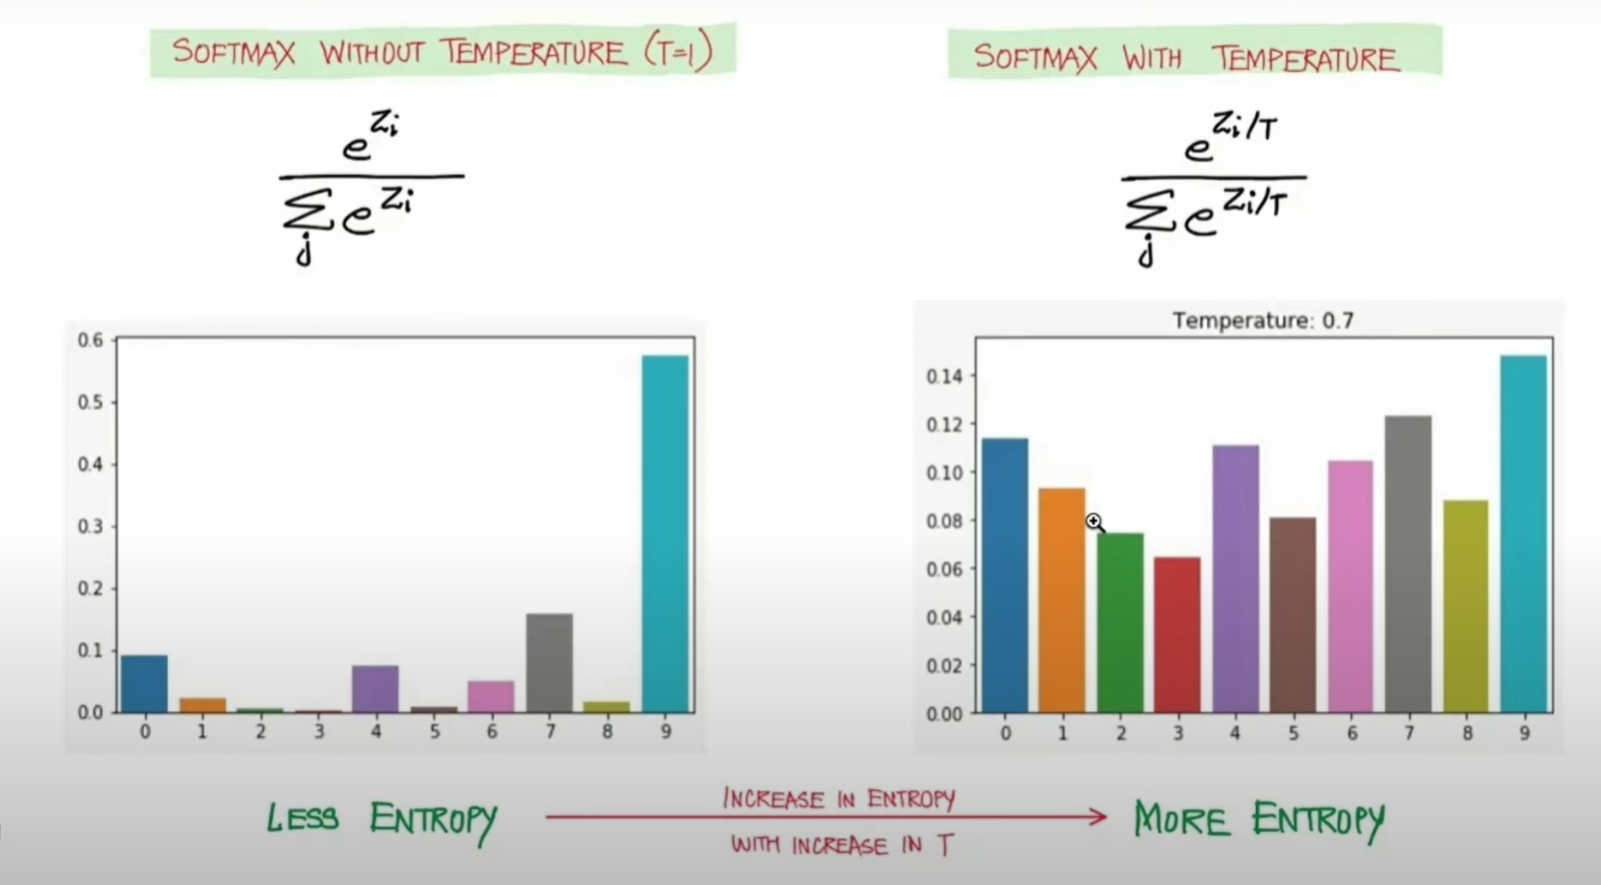 SOFTMAX WITHOUT TEMPERATURE (T=1)
e^{Zi}
∑_j e^{Zi}
0.6
0.5
0.4
0.3
0.2
0.1
0.0
0 1 2 3 4 5 6 7 8 9
LESS ENTROPY
SOFTMAX WITH TEMPERATURE
e^{Zi/T}
∑_j e^{Zi/T}
Temperature: 0.7
0.14
0.12
0.10
0.08
0.06
0.04
0.02
0.00
0 1 2 3 4 5 6 7 8 9
INCREASE IN ENTROPY
WITH INCREASE IN T
MORE ENTROPY